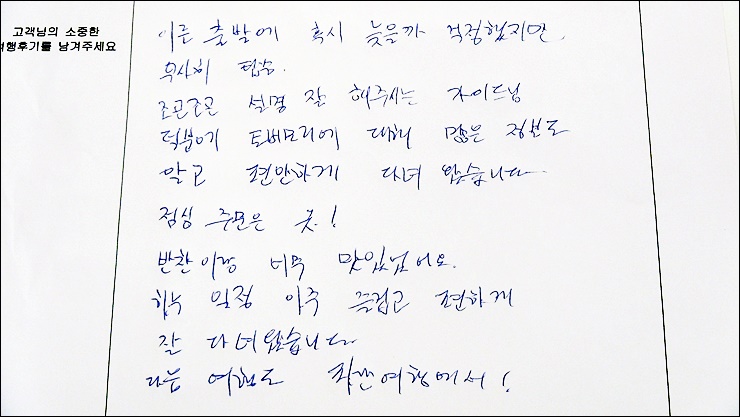 고객님의 소중한
여행후기를 남겨주세요
이른 출발에 혹시 늦을까 걱정했지만,
무사히 탑승.
조곤조곤 설명 잘 해주시는 가이드님
덕분에 토베모리에 대해 많은 정보도
알고 편안하게 다녀 왔습니다
점심 주문은 굿!
반찬이랑 너무 맛있었어요.
하루 일정 아주 즐겁고 편하게
잘 다녀왔습니다
다음 여행도 여행에서!